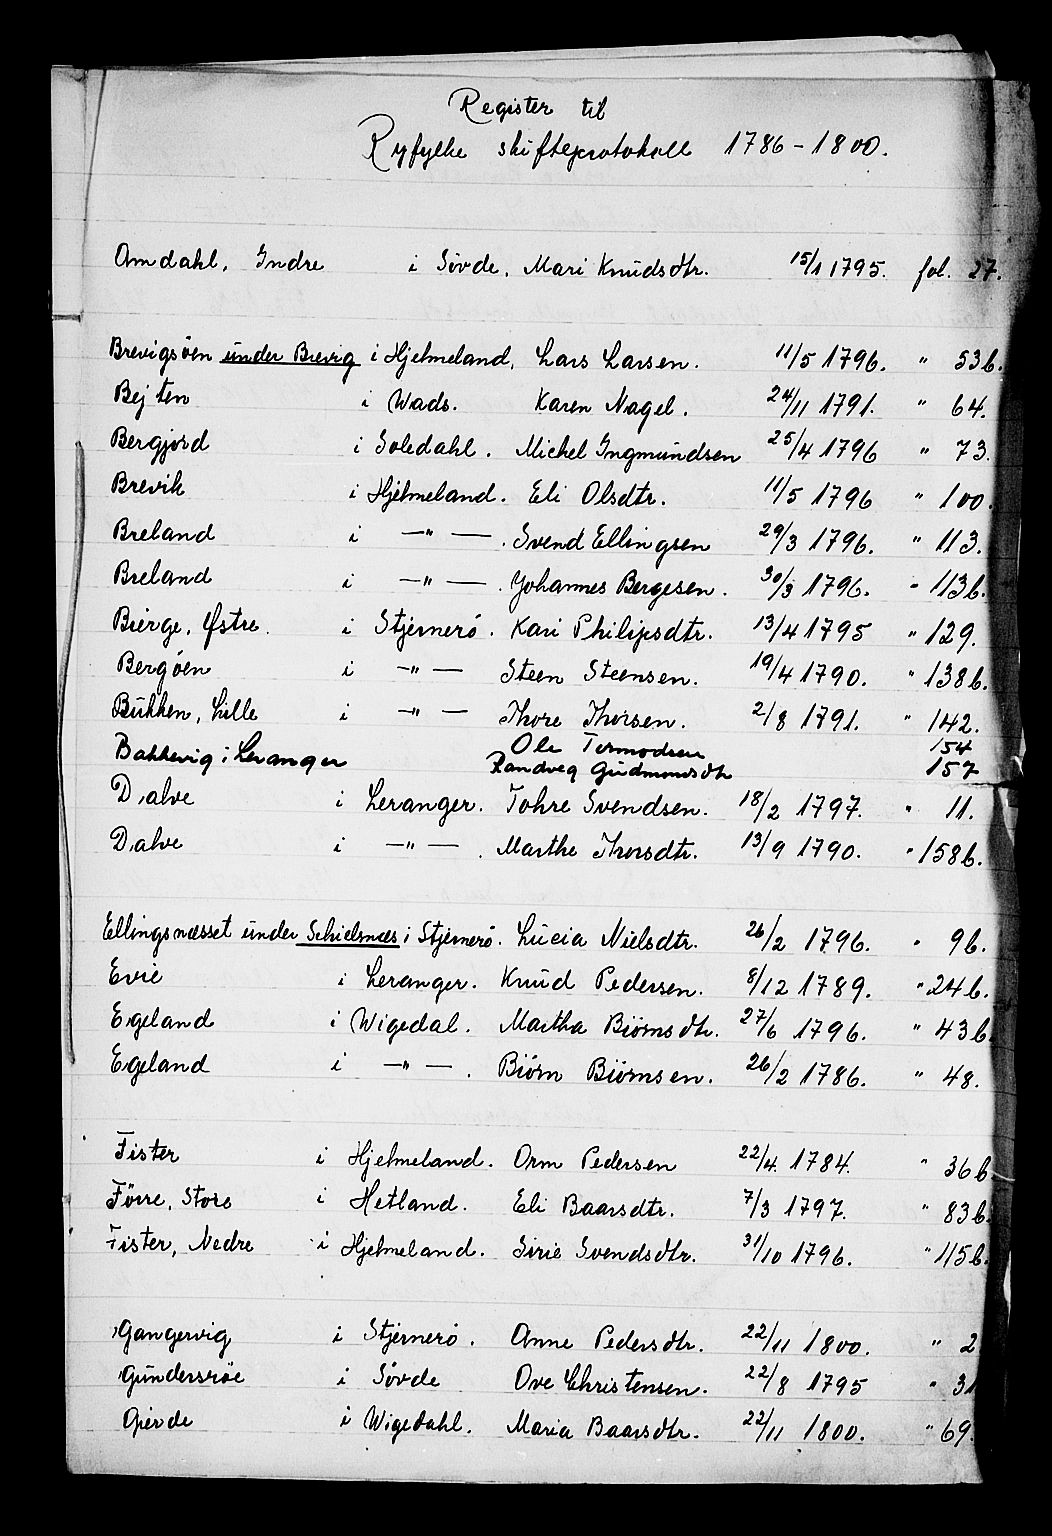 Register til
Ryfylke skifteprotokoll 1786-1800.
Amdahl, Indre i Søvde, Mari Knudsdtr. 15/1 1795. fol. 27.
Brevigsøen under Brevig i Hjelmeland, Lars Larsen. 11/5 1796. " 53b.
Bejten i Wads. Karen Nagel. 24/11 1791. " 64.
Bergjord i Soledahl. Michel Ingmundsen 25/4 1796 " 73.
Brevik i Hjelmeland. Eli Olsdtr. 11/5 1796 " 100.
Breland i —"— . Svend Ellingsen 29/3 1796. " 113.
Breland i —"— . Johannes Bergesen. 30/3 1796. " 113b.
Bierge, Østre. i Stjernerö. Kari Philipsdtr. 13/4 1795 " 129.
Bergöen i —"— Steen Steensen. 19/4 1790. " 138b.
Bukken, Lille i —"— Thore Thorsen. 2/8 1791. " 142.
Bakkevig i Leranger Ole Tormodsen 154
Randveg Gudmundsdtr 157
Dalve i Leranger. Tohre Svendsen. 18/2 1797. " 11.
Dalve i —"— . Marthe Thorsdtr. 13/9 1790. " 158b.
Ellingsnæsset under Schielsnæs i Stjernerö. Lucia Nielsdtr. 26/2 1796. " 9b.
Evie i Leranger. Knud Pedersen. 8/12 1789. " 24b.
Egeland i Wigedal. Martha Biörnsdtr. 27/6 1796. " 43b
Egeland i —"— . Biörn Biörnsen. 26/2 1786. " 48.
Fister i Hjelmeland. Orm Pedersen 22/4. 1784. " 36b
Förre, Store i Hetland. Eli Baarsdtr. 7/3 1797. " 83b.
Fister, Nedre i Hjelmeland. Sirie Svendsdtr. 31/10 1796. " 115b.
Gangervig i Stjernerö. Anne Pedersdtr. 22/11 1800. " 2
Gundersröe i Søvde Ove Christensen. 22/8 1795 " 31
Gierde i Wigedahl. Maria Baarsdtr. 22/11 1800. " 69.